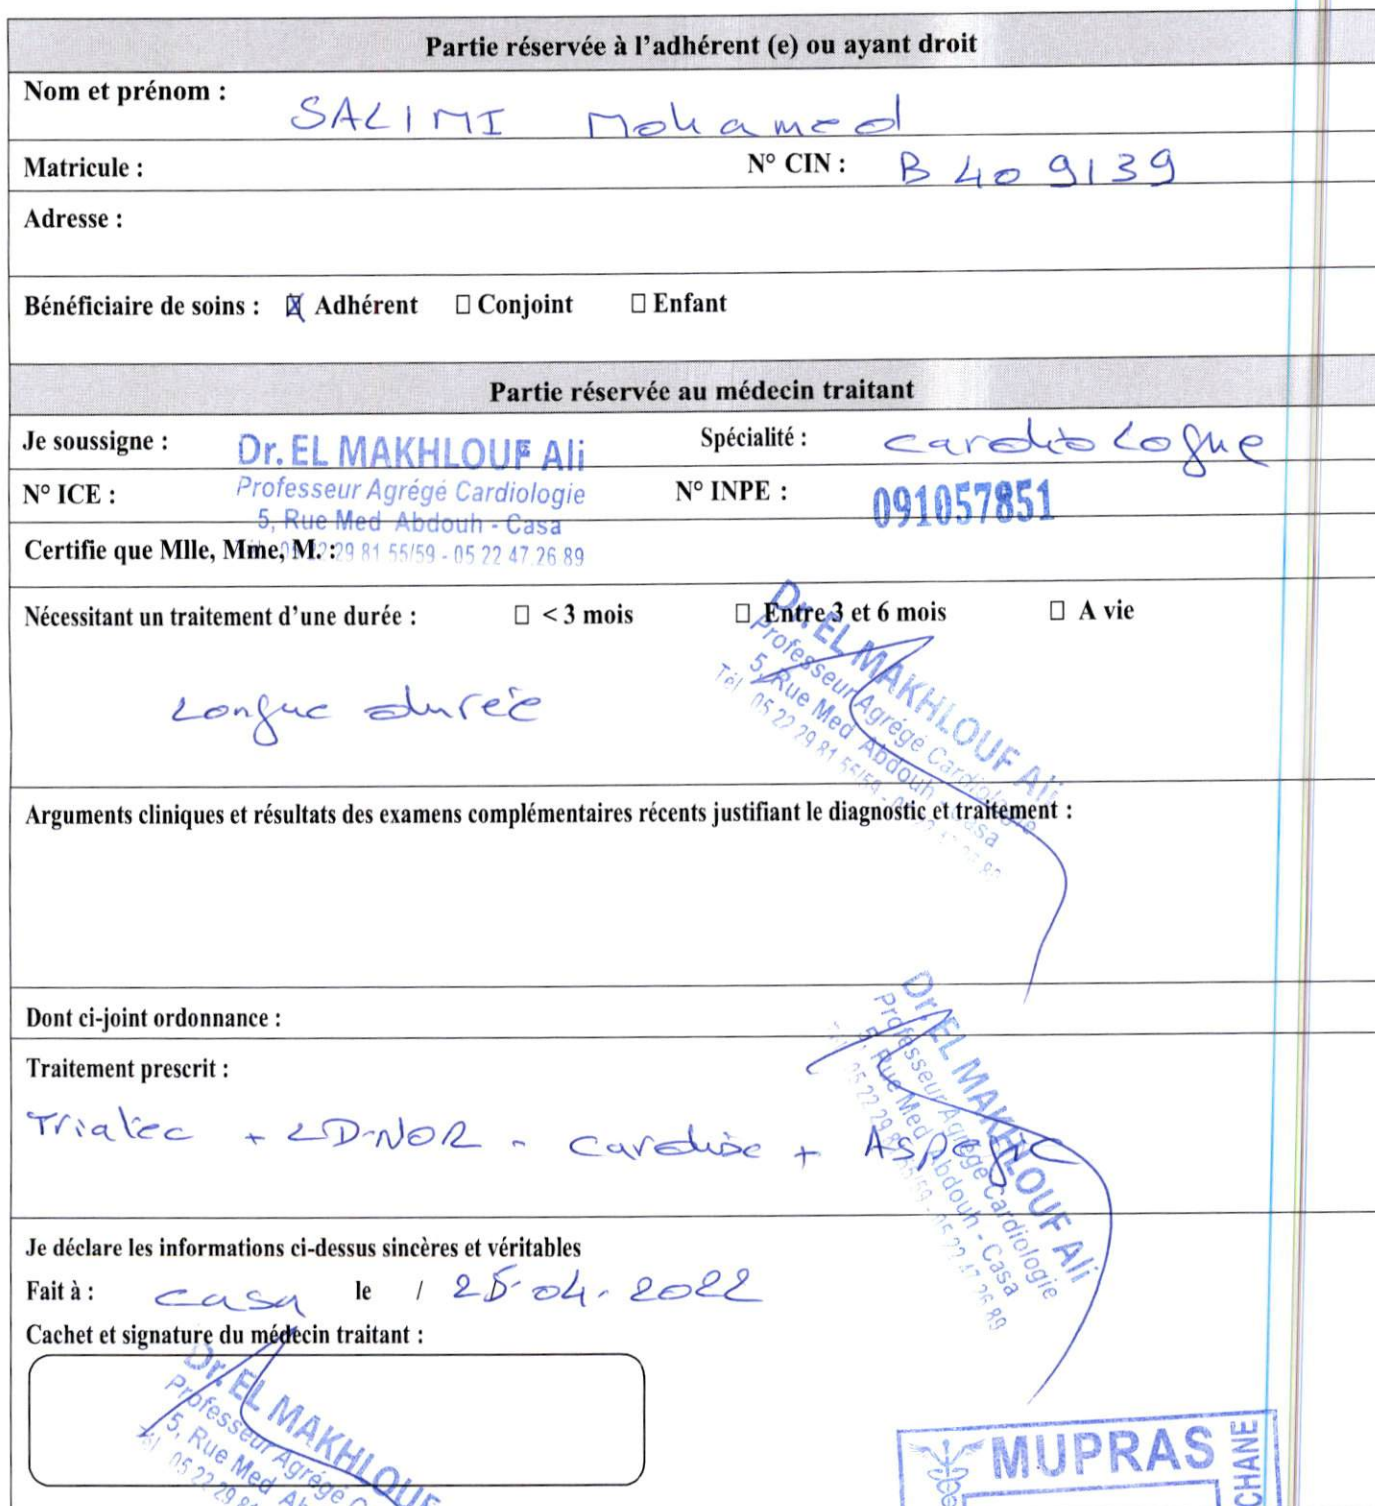 Partie réservée à l'adhérent (e) ou ayant droit
Nom et prénom : SALIMI Mohamed
Matricule : N° CIN : B 409139
Adresse :
Bénéficiaire de soins : ☒ Adhérent ☐ Conjoint ☐ Enfant
Partie réservée au médecin traitant
Je soussigne : Dr. EL MAKHLOUF Ali Spécialité : cardiologue
Professeur Agrégé Cardiologie
N° ICE : N° INPE : 091057851
5, Rue Med Abdouh - Casa
Certifie que Mlle, Mme, M. : 05 22 29 81 55/59 - 05 22 47 26 89
Nécessitant un traitement d'une durée : ☐ < 3 mois ☐ Entre 3 et 6 mois ☐ A vie
Longue durée
Dr. EL MAKHLOUF Ali
Professeur Agrégé Cardiologie
5, Rue Med Abdouh - Casa
Tél 05 22 29 81 55/59 - 05 22 47 26 89
Arguments cliniques et résultats des examens complémentaires récents justifiant le diagnostic et traitement :
Dont ci-joint ordonnance :
Traitement prescrit :
Triatec + LD-NOR - Cardix + ASPEGIC
Dr. EL MAKHLOUF Ali
Professeur Agrégé Cardiologie
5, Rue Med Abdouh - Casa
05 22 29 81 55/59 - 05 22 47 26 89
Je déclare les informations ci-dessus sincères et véritables
Fait à : casa le / 25-04-2022
Cachet et signature du médecin traitant :
Dr. EL MAKHLOUF
Professeur Agrégé
5, Rue Med
Tél 05 22 29
MUPRAS